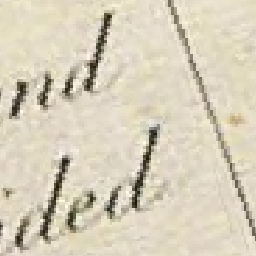 nd
ided